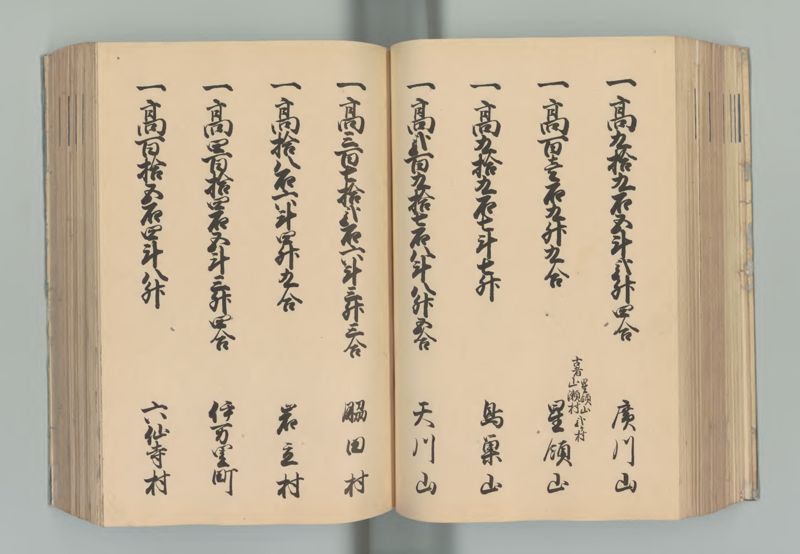 一高九拾九石五斗弐升四合 廣川山
一高百壱石九升九合 星領山
一高九拾九石七斗七升 鳥巣山
一高弐百九拾七石八斗八升五合 天川山
一高三百七拾弐石六斗三升三合 脇田村
一高拾八石六斗四升九合 岩立村
一高四百拾四石五斗三升四合 伊万里町
一高百拾五石四斗八升 六仙寺村